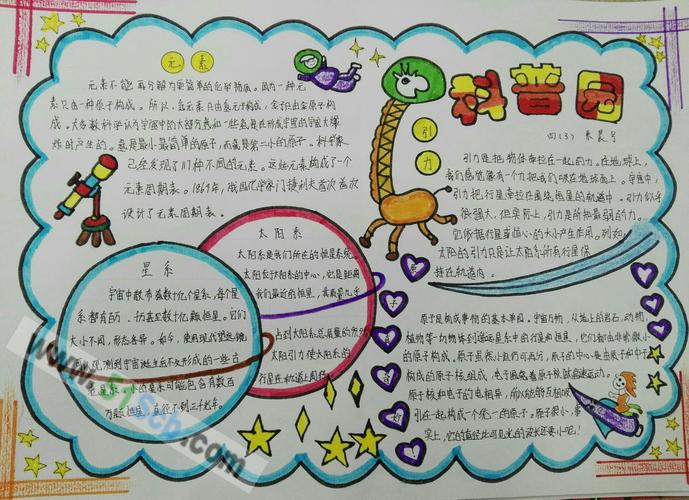 元素
元素不能再分解为更简单的化学物质。因为一种元
素只由一种原子构成。所以,氢元素只由氢元子构成,金子只由金原子构
成。大多数科学认为宇宙中的大部分氢和一些氦是在形成宇宙的宇宙大爆
炸时产生的。氢是最小最简单的原子,而氦是第二小的原子。科学家
已经发现了117种不同的元素。这些元素构成了一个
元素周期表。1869年,俄国化学家门捷列夫首次
设计了元素周期表。
科普园
引力
引力是把物体牵拉在一起的力。在地球上,
我们感觉像有一个力把我们吸在地球面上。宇宙中,
引力把行星牵拉在围绕恒星的轨道中。引力似乎
很强大,但实际上,引力是所知最弱的力。
它依据行星或恒心的大小产生作用。例如,
太阳的引力只是让太阳系所有行星保
持在轨道内。
太阳系
太阳系是我们所在的恒星系统。
太阳位于太阳系的中心,它是距离
我们最近的恒星,其质量几乎
占到太阳系总质量的
太阳引力使太阳系的
行星在轨道上
星系
宇宙中散布着数十亿个星系,每个星
系都有百万甚至数十亿颗恒星。它们
大小不同,形态各异。如今,使用现代望远镜
可以观测到宇宙诞生后不久形成的一些古
老星系。小的星系可能包含有数百
万颗恒星,直径不到三千光年。
原子
原子是构成事物的基本单园。宇宙万物,从地上的岩石、动物、
植物等一切物体到遥远星系中的行星和恒星,它们都由非常微小
的原子构成。原子虽微小但仍可再分,原子的中心是由质子和中子
构成的原子核组成,电子围绕着原子核高速运动。
原子核和电子的电相异,所以能够互相吸
引在一起构成一个完一的原子。原子很小,事
实上,它的直径比可见光的波长还要小呢!
www.
Scb.com